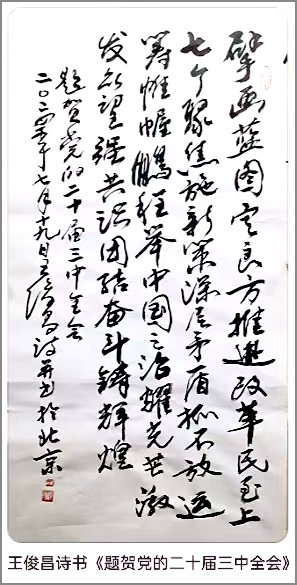 擘画蓝图定良方推进改革民至上
七个聚焦施新策深层矛盾抓不放运
筹帷幄鹏程举中国之治耀光芒激
发众望强共识团结奋斗铸辉煌
题贺党的二十届三中全会
二〇二四年七月十九日王俊昌诗并书于北京
王俊昌诗书《题贺党的二十届三中全会》